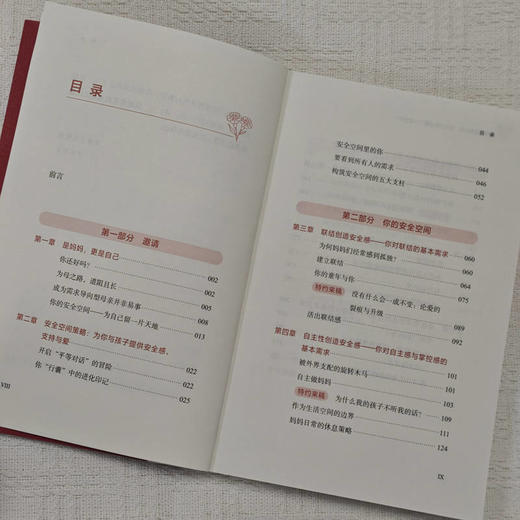 目录
前言
第一部分 邀请
第一章 是妈妈，更是自己 002
你还好吗？ 002
为母之路，道阻且长 002
成为需求导向型母亲并非易事 005
你的安全空间——为自己留一片天地 008
013
第二章 安全空间策略：为你与孩子提供安全感、
支持与爱 022
开启“平等对话”的冒险 022
你“行囊”中的进化印记 025
VIII
目 录
安全空间里的你 044
要看到所有人的需求 046
构筑安全空间的五大支柱 052
第二部分 你的安全空间
第三章 联结创造安全感——你对联结的基本需求 060
为何妈妈们经常感到孤独？ 060
建立联结 064
你的童年与你 075
特约来稿 没有什么会一成不变：论爱的
裂痕与升级 089
活出联结感 092
第四章 自主性创造安全感——你对自主感与掌控感的
基本需求 101
被外界支配的旋转木马 101
自主做妈妈 103
特约来稿 为什么我的孩子不听我的话？ 109
作为生活空间的边界 111
妈妈日常的休息策略 124
IX